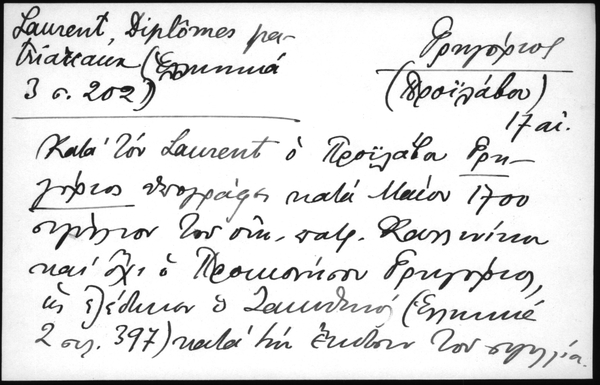 Laurent, Diplômes pa-
triarcaux (Ἑλληνικά
3 σ. 202)
Γρηγόριος
(Προϊλάβου)
17 αἰ.
Κατά τόν Laurent ὁ Προϊλάβου Γρη-
γόριος ὑπογράφει κατά Μαῖον 1700
σιγίλλιον τοῦ οἰκ. πατρ. Καλλινίκου
καί ὄχι ὁ Προικονήσου Γρηγόριος,
ὡς ἐξέδωκεν ὁ Ζακυθηνός (Ἑλληνικά
2 σελ. 397) κατά τήν ἔκδοσιν τοῦ σιγιλλίου.